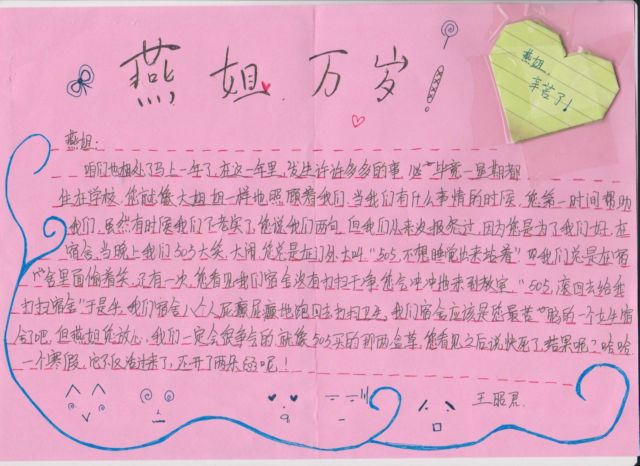 燕姐万岁!
燕姐,
辛苦了!
燕姐:
咱们也相处了马上一年了,在这一年里,发生许许多多的事,毕竟一星期都
住在学校,您就像大姐姐一样地照顾着我们,当我们有什么事情的时候,您第一时间帮助
我们,虽然有时候我们不老实了,您说我们两句,但我们从来没报怨过,因为您是为了我们好,在
宿舍,当晚上我们505大笑,大闹,您总是在门外大叫“505,不想睡觉出来站着”而我们总是在宿
舍里面偷着笑,还有一次,您看见我们宿舍没有打扫干净,您气冲冲地来到教室,“505,滚回去给我
打扫宿舍”于是乎,我们宿舍八个人屁颠屁颠地跑回去打扫卫生,我们宿舍应该是您最苦恼的一个女生宿
舍了吧,但燕姐您放心,我们一定会很争气的,就像505买的那两盆草,您看见之后说快死了,结果呢?哈哈
一个寒假,它不仅活过来了,还开了两朵呢!
王昭君